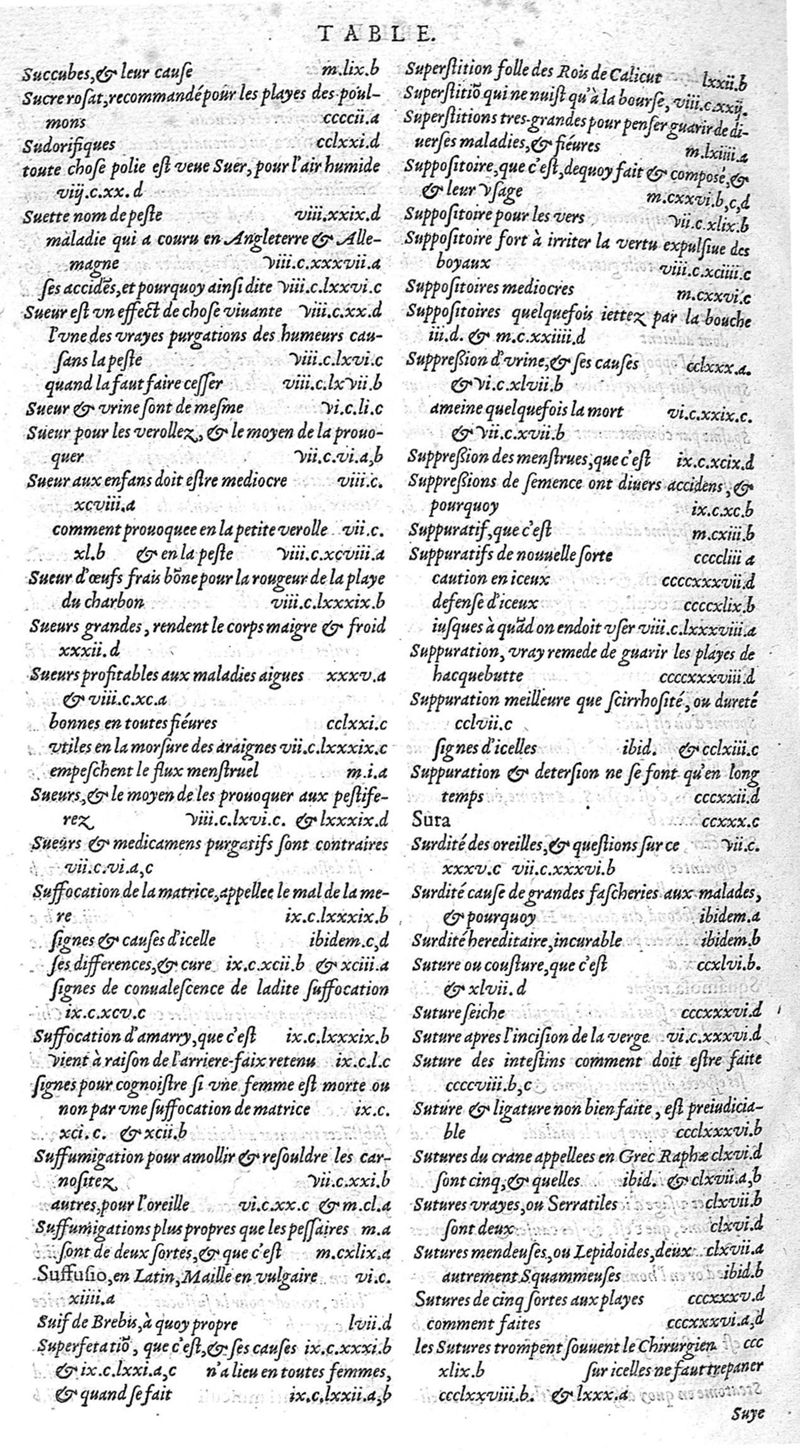 TABLE.
Succubes,& leur cause m.lix.b
Sucre rosat,recommandé pour les playes des poul-
mons ccccii.a
Sudorifiques cclxxi.d
toute chose polie est veue Suer, pour l'air humide
viij.c.xx. d
Suette nom de peste viii.xxix.d
maladie qui a couru en Angleterre & Alle-
magne viii.c.xxxvii.a
ses accidẽs,et pourquoy ainsi dite viii.c.lxxvi.c
Sueur est vn effect de chose viuante viii.c.xx.d
l'vne des vrayes purgations des humeurs cau-
sans la peste viii.c.lxvi.c
quand la faut faire cesser viii.c.lxvii.b
Sueur & vrine sont de mesme vi.c.li.c
Sueur pour les verollez, & le moyen de la prouo-
quer vii.c.vi.a,b
Sueur aux enfans doit estre mediocre viii.c.
xcviii.a
comment prouoquee en la petite verolle vii.c.
xl.b & en la peste viii.c.xcviii.a
Sueur d'œufs frais bõne pour la rougeur de la playe
du charbon viii.c.lxxxix.b
Sueurs grandes, rendent le corps maigre & froid
xxxii.d
Sueurs profitables aux maladies aigues xxxv.a
& viii.c.xc.a
bonnes en toutes fiéures cclxxi.c
vtiles en la morsure des araignes vii.c.lxxxix.c
empeschent le flux menstruel m.i.a
Sueurs,& le moyen de les prouoquer aux pestife-
rez viii.c.lxvi.c. & lxxxix.d
Sueurs & medicamens purgatifs sont contraires
vii.c.vi.a,c
Suffocation de la matrice,appellee le mal de la me-
re ix.c.lxxxix.b
signes & causes d'icelle ibidem.c,d
ses differences,& cure ix.c.xcii.b & xciii.a
signes de conualescence de ladite suffocation
ix.c.xcv.c
Suffocation d'amarry,que c'est ix.c.lxxxix.b
vient à raison de l'arriere-faix retenu ix.c.l.c
signes pour cognoistre si vne femme est morte ou
non par vne suffocation de matrice ix.c.
xci. c. & xcii.b
Suffumigation pour amollir & resouldre les car-
nositez vii.c.xxi.b
autres,pour l'oreille vi.c.xx.c & m.cl.a
Suffumigations plus propres que les pessaires m.a
sont de deux sortes,& que c'est m.cxlix.a
Suffusio,en Latin,Maille en vulgaire vi.c.
xiiii.a
Suif de Brebis,à quoy propre lvii.d
Superfetatiõ, que c'est,& ses causes ix.c.xxxi.b
& ix.c.lxxi.a,c n'a lieu en toutes femmes,
& quand se fait ix.c.lxxii.a,b
Superstition folle des Rois de Calicut lxxii.b
Superstitiõ qui ne nuist qu'à la bourse, viii.c.xxij.
Superstitions tres-grandes pour penser guarir de di-
uerses maladies,& fiéures m.lxiiii.a
Suppositoire,que c'est,dequoy fait & composé,&
& leur vsage m.cxxvi.b,c,d
Suppositoire pour les vers vii.c.xlix.b
Suppositoire fort à irriter la vertu expulsiue des
boyaux viii.c.xciiii.c
Suppositoires mediocres m.cxxvi.c
Suppositoires quelquefois iettez par la bouche
iii.d. & m.c.xxiiii.d
Suppression d'vrine,& ses causes cclxxx.a.
& vi.c.xlvii.b
ameine quelquefois la mort vi.c.xxix.c.
& vii.c.xvii.b
Suppression des menstrues,que c'est ix.c.xcix.d
Suppressions de semence ont diuers accidens, &
pourquoy ix.c.xc.b
Suppuratif,que c'est m.cxiii.b
Suppuratifs de nouuelle sorte ccccliii a
caution en iceux ccccxxxvii.d
defense d'iceux ccccxlix.b
iusques à quãd on endoit vser viii.c.lxxxviii.a
Suppuration, vray remede de guarir les playes de
hacquebutte ccccxxxviii.d
Suppuration meilleure que scirrhosité,ou dureté
cclvii.c
signes d'icelles ibid. & cclxiii.c
Suppuration & detersion ne se font qu'en long
temps cccxxii.d
Sura ccxxx.c
Surdité des oreilles,& questions sur ce vii.c.
xxxv.c vii.c.xxxvi.b
Surdité cause de grandes fascheries aux malades,
& pourquoy ibidem.a
Surdité hereditaire,incurable ibidem.b
Suture ou cousture,que c'est ccxlvi.b.
& xlvii.d
Suture seiche cccxxxvi.d
Suture apres l'incision de la verge vi.c.xxxvi.d
Suture des intestins comment doit estre faite
ccccviii.b,c
Suture & ligature non bien faite, est preiudicia-
ble ccclxxxvi.b
Sutures du crane appellees en Grec Raphæ clxvi.d
sont cinq,& quelles ibid. & clxvii.a,b
Sutures vrayes,ou Serratiles clxvii.b
sont deux clxvi.d
Sutures mendeuses,ou Lepidoides,deux clxvii.a
autrement Squammeuses ibid.b
Sutures de cinq sortes aux playes cccxxxv.d
comment faites cccxxxvi.a,d
les Sutures trompent souuent le Chirurgien ccc
xlix.b sur icelles ne faut trepaner
ccclxxviii.b. & lxxx.a
Suye